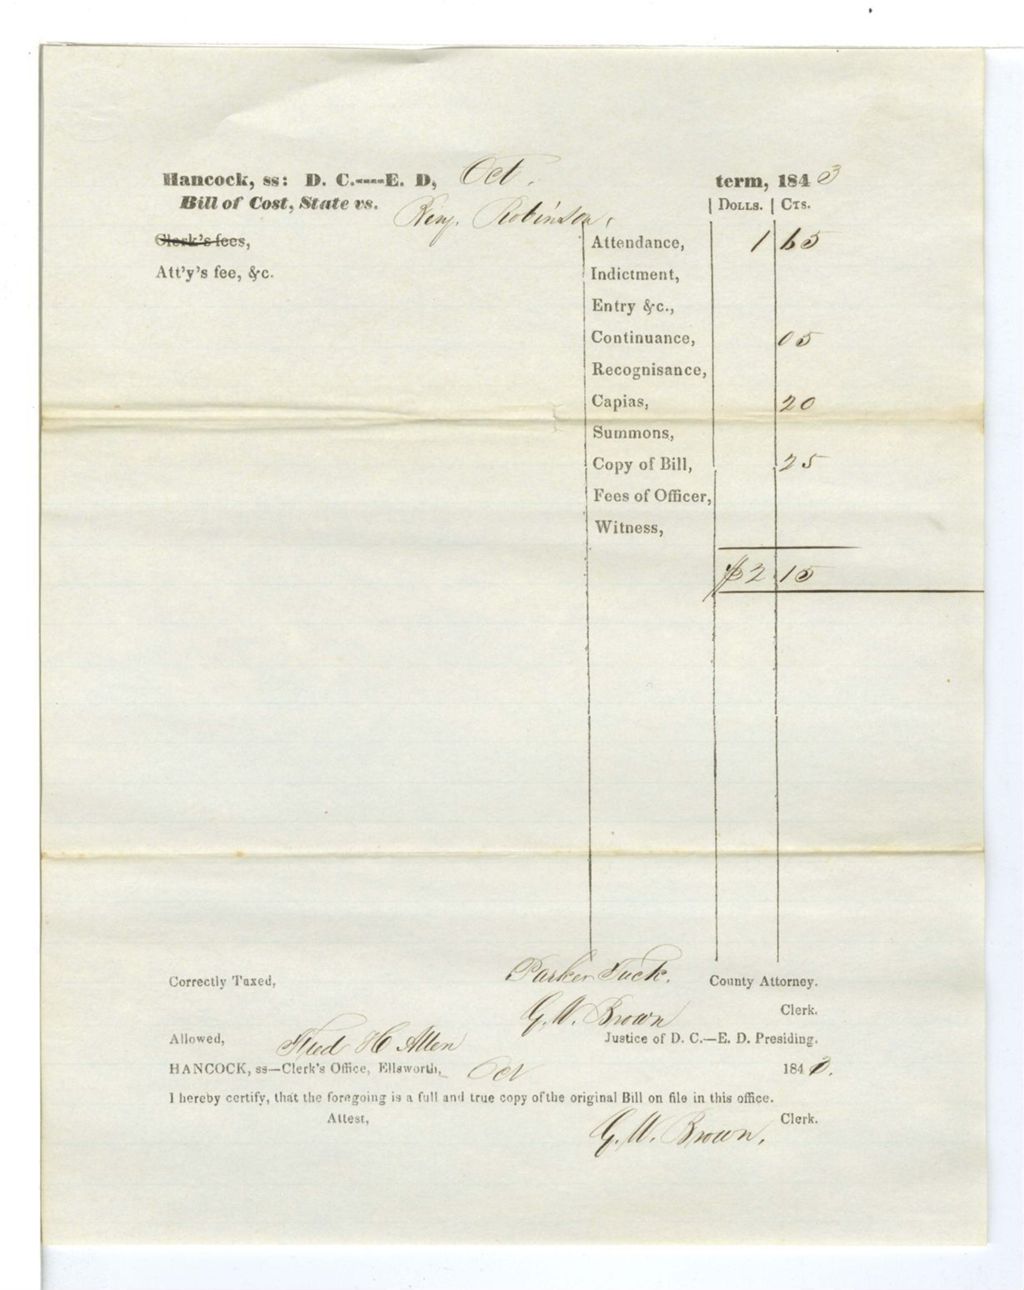 Hancock, ss: D. C.----E. D, Oct. term, 1843
Bill of Cost, State vs. Benj. Robinson, | Dolls. | Cts.
Clerk's fees, Attendance, 1 65
Att'y's fee, &c. Indictment,
Entry &c.,
Continuance, 05
Recognisance,
Capias, 20
Summons,
Copy of Bill, 25
Fees of Officer,
Witness,
$2 15
Correctly Taxed, Parker Tuck. County Attorney.
G. W. Brown Clerk.
Allowed, Fred H Allen Justice of D. C.—E. D. Presiding.
HANCOCK, ss—Clerk's Office, Ellsworth, Oct 1843.
I hereby certify, that the foregoing is a full and true copy of the original Bill on file in this office.
Attest, G. W. Brown, Clerk.